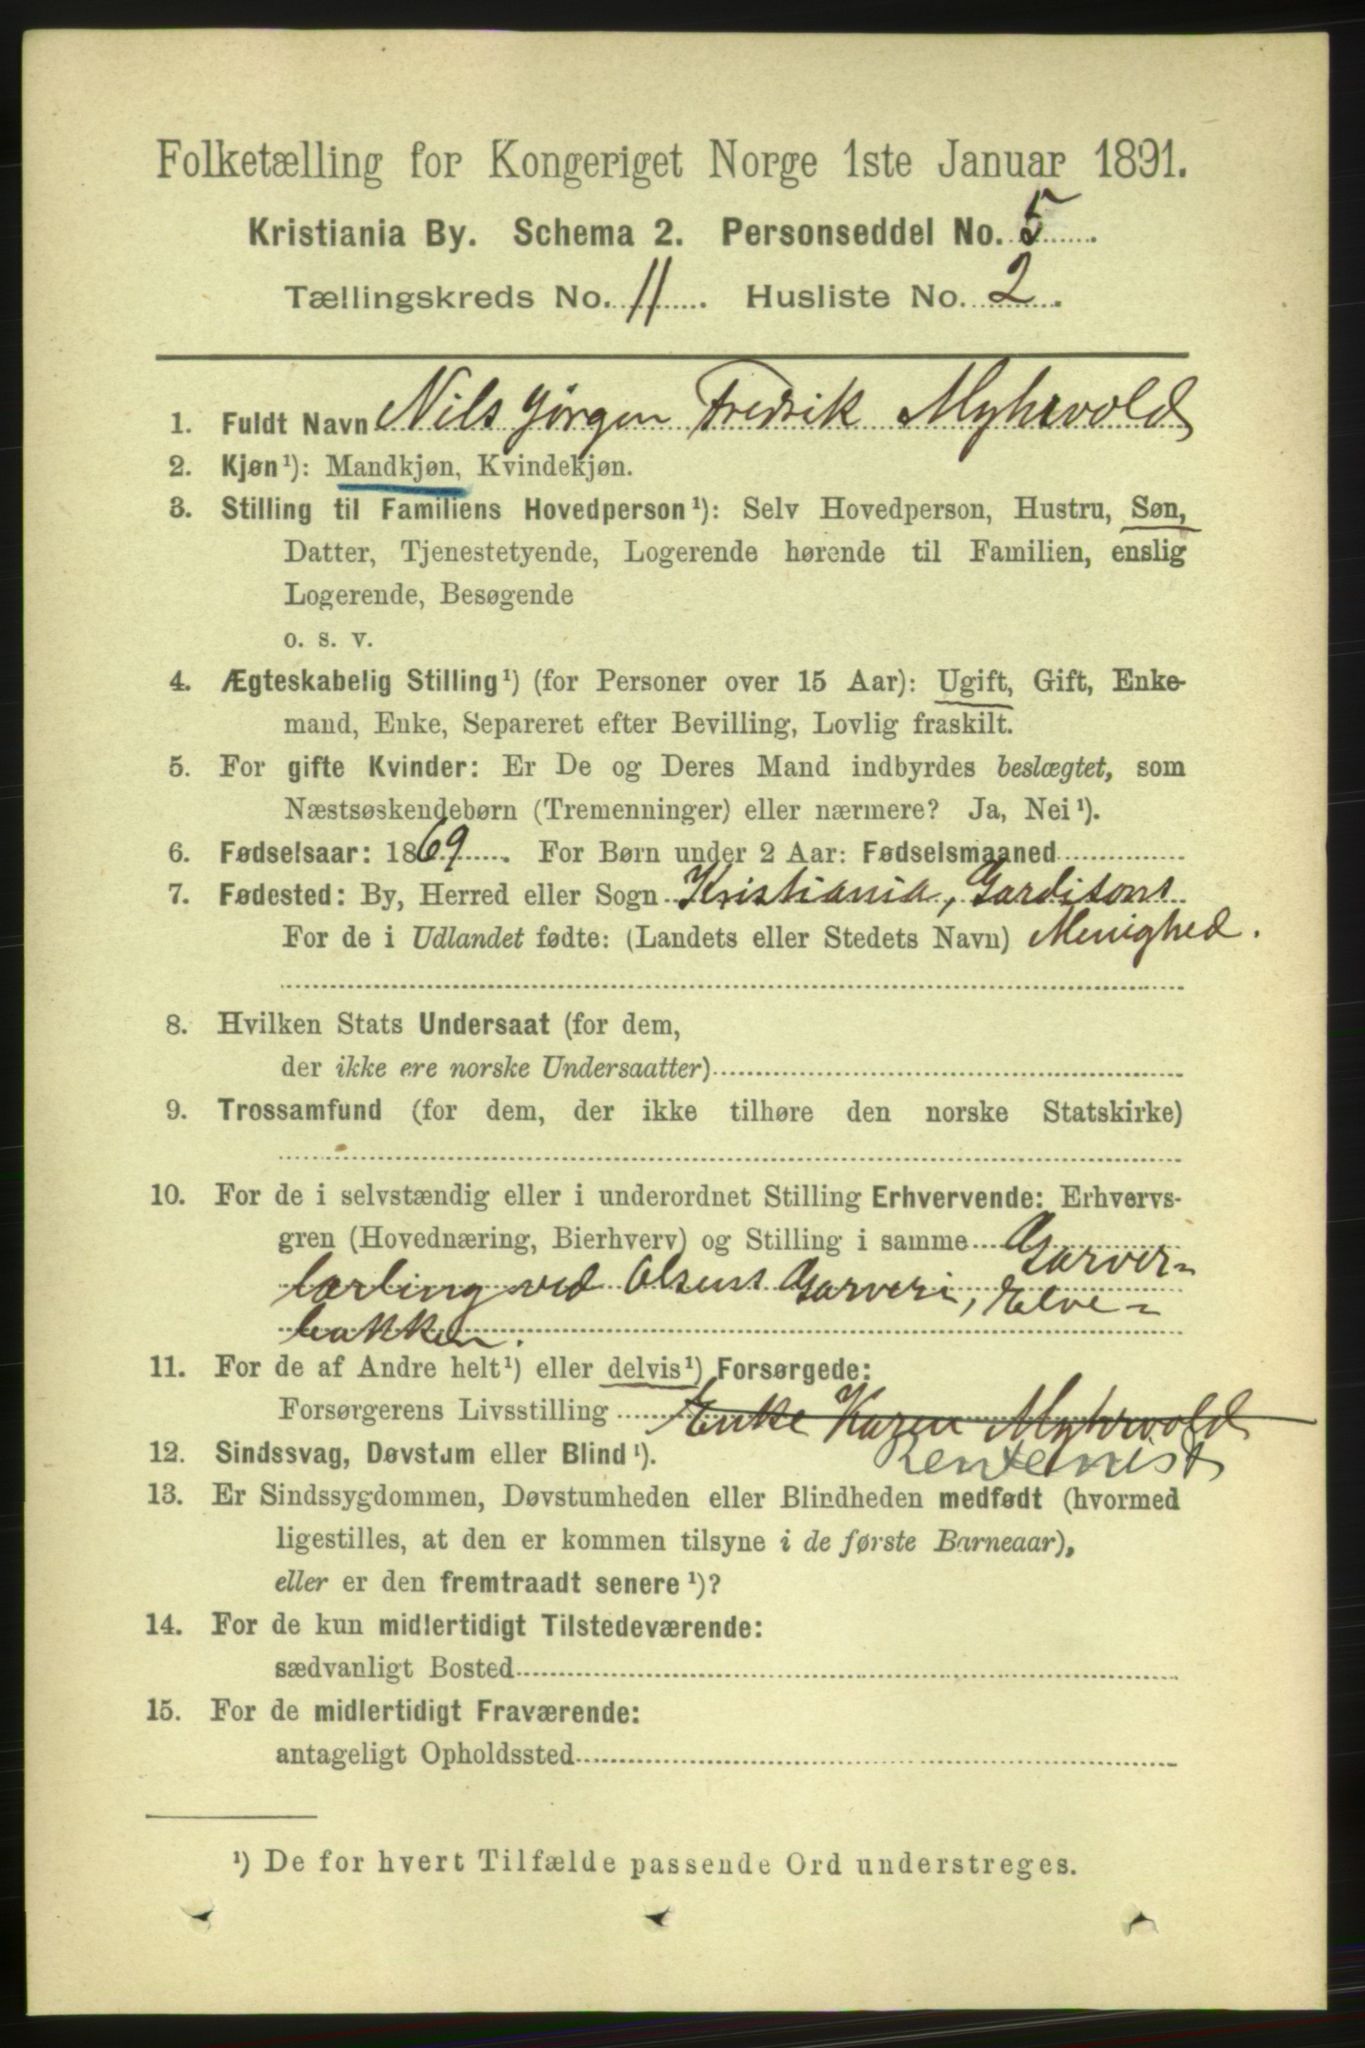 Folketælling for Kongeriget Norge 1ste Januar 1891.
Kristiania By. Schema 2. Personseddel No. 5.
Tællingskreds No. 11. Husliste No. 2.
1. Fuldt Navn Nils Jørgen Fredrik Myhrvold
2. Kjøn¹): Mandkjøn, Kvindekjøn.
3. Stilling til Familiens Hovedperson¹): Selv Hovedperson, Hustru, Søn,
Datter, Tjenestetyende, Logerende hørende til Familien, enslig
Logerende, Besøgende
o. s. v.
4. Ægteskabelig Stilling¹) (for Personer over 15 Aar): Ugift, Gift, Enke-
mand, Enke, Separeret efter Bevilling, Lovlig fraskilt.
5. For gifte Kvinder: Er De og Deres Mand indbyrdes beslægtet, som
Næstsøskendebørn (Tremenninger) eller nærmere? Ja, Nei¹).
6. Fødselsaar: 1869. For Børn under 2 Aar: Fødselsmaaned
7. Fødested: By, Herred eller Sogn Kristiania, Garnisons
For de i Udlandet fødte: (Landets eller Stedets Navn) Menighed.
8. Hvilken Stats Undersaat (for dem,
der ikke ere norske Undersaatter)
9. Trossamfund (for dem, der ikke tilhøre den norske Statskirke)
10. For de i selvstændig eller i underordnet Stilling Erhvervende: Erhvervs-
gren (Hovednæring, Bierhverv) og Stilling i samme Garver-
lærling ved Olsens Garveri, Elve-
bakken.
11. For de af Andre helt¹) eller delvis¹) Forsørgede:
Forsørgerens Livsstilling Enke Karen Myhrvold
12. Sindssvag, Døvstum eller Blind¹). Rentenist
13. Er Sindssygdommen, Døvstumheden eller Blindheden medfødt (hvormed
ligestilles, at den er kommen tilsyne i de første Barneaar),
eller er den fremtraadt senere¹)?
14. For de kun midlertidigt Tilstedeværende:
sædvanligt Bosted
15. For de midlertidigt Fraværende:
antageligt Opholdssted
¹) De for hvert Tilfælde passende Ord understreges.